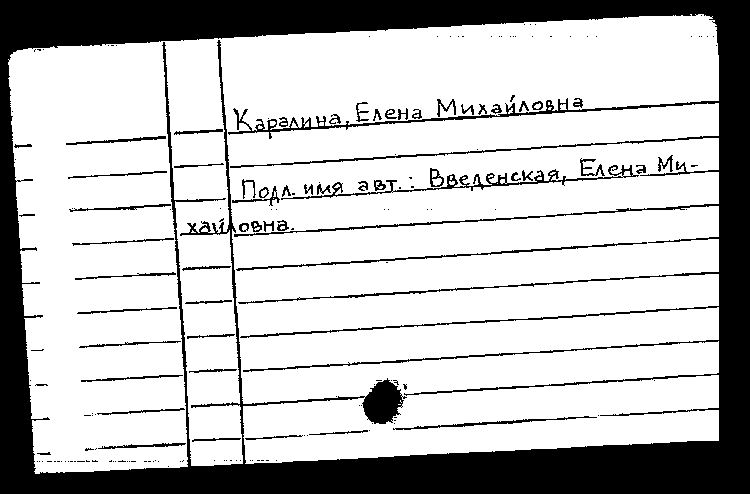 Каралина, Елена Михайловна
Подл. имя авт.: Введенская, Елена Ми-
хайловна.